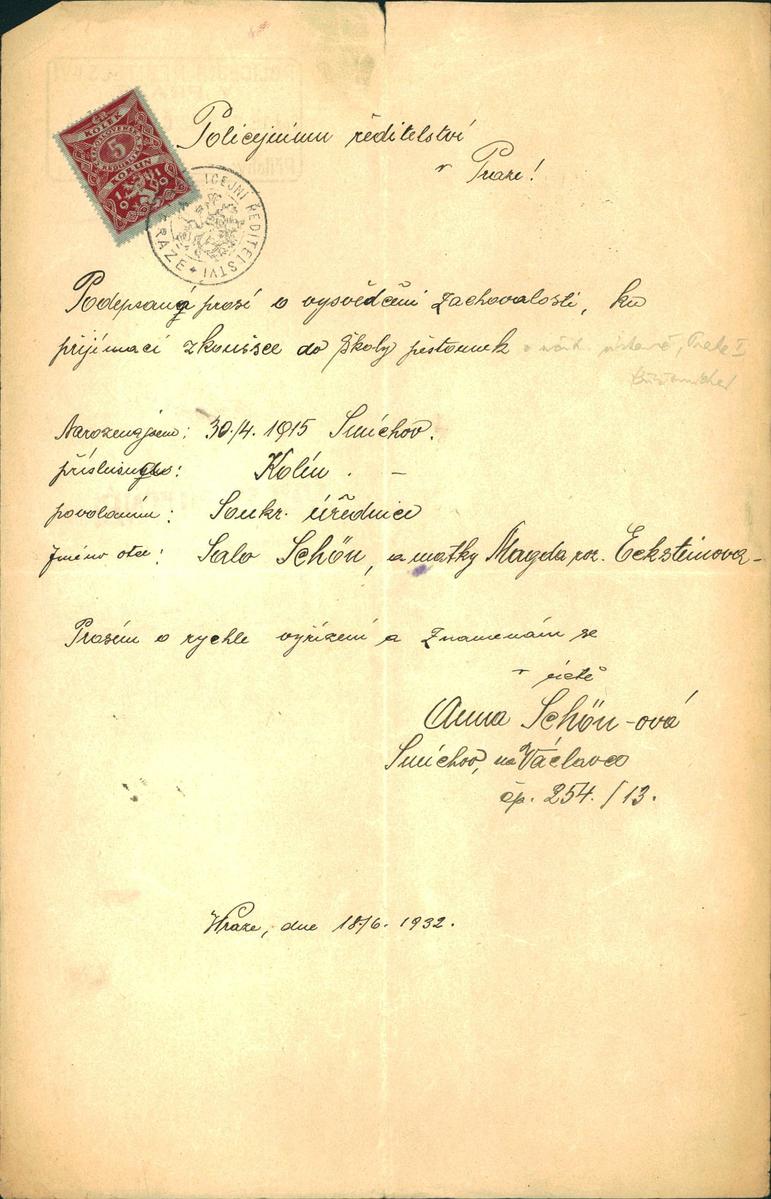 Policejnímu ředitelství
v Praze!
KOLEK
5
KORUN
POLICEJNÍ ŘEDITELSTVÍ V PRAZE
Podepsaná prosí o vysvědčení zachovalosti, ku
přijímací zkoušce do školy pěstounek
Narozena jsem: 30./4. 1915 Smíchov.
příslušna: Kolín. –
povoláním: Soukr. úřednice
Jméno otce: Salo Schön, a matky Magda roz. Ecksteinova –
Prosím o rychlé vyřízení a znamenám se
v úctě
Anna Schön-ová
Smíchov, na Václavce
čp. 254./13.
V Praze, dne 18/6. 1932.